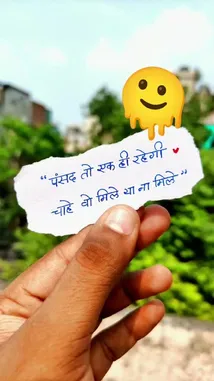 “पंसद तो एक ही रहेगी
चाहे वो मिले या ना मिले”